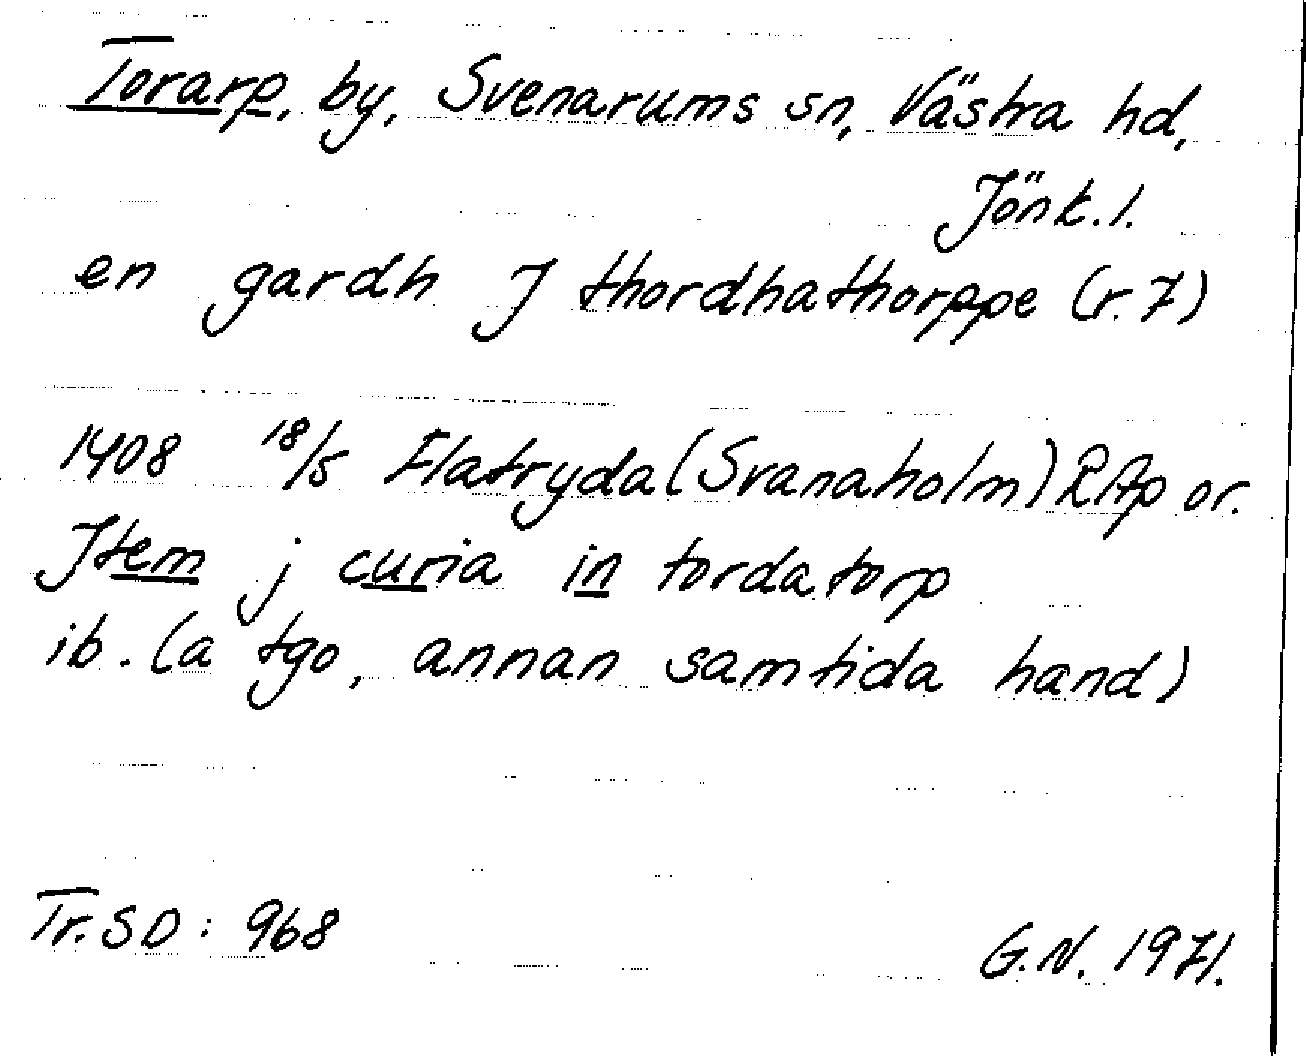 Torarp, by, Svenarums sn, Västra hd,
Jönk.l.
en gardh J thordhathorppe (r. 7)
1408 18/5 Flatryda (Svanaholm) RAp or.
Jtem j curia in tordatorp
ib. (a tgo, annan samtida hand)
Tr. SD : 968
G.N. 1971.